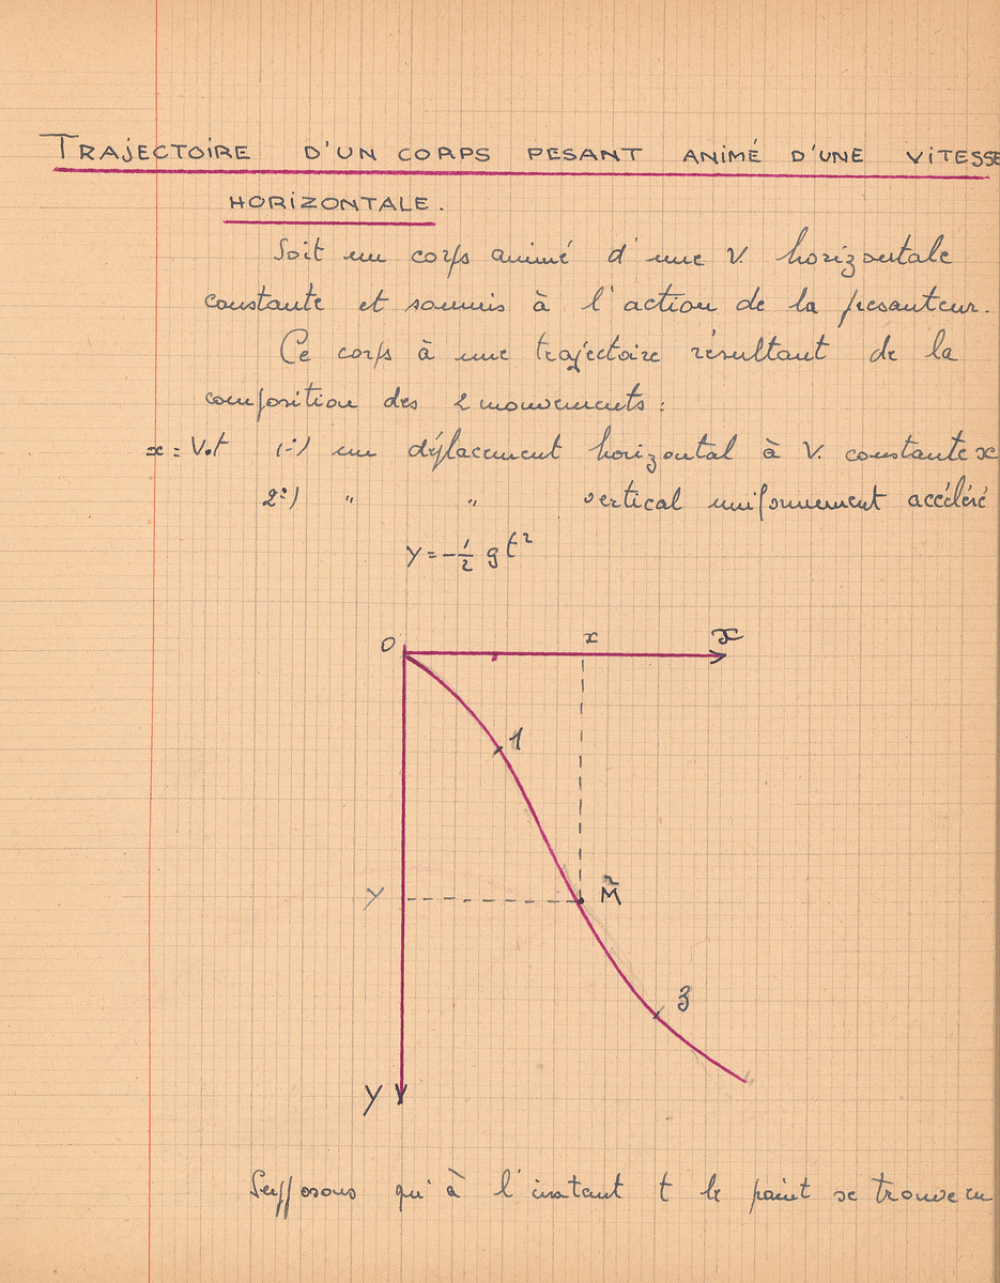 TRAJECTOIRE D'UN CORPS PESANT ANIMÉ D'UNE VITESSE
HORIZONTALE.
Soit un corps animé d'une V. horizontale
constante et soumis à l'action de la pesanteur.
Ce corps à une trajectoire résultant de la
composition des 2 mouvements :
x = V.t 1:) un déplacement horizontal à V. constante x
2:) " " vertical uniformement accéléré
y = -1/2 gt²
O x x
1
y M 2
3
y
Supposons qu'à l'instant t le point se trouve en